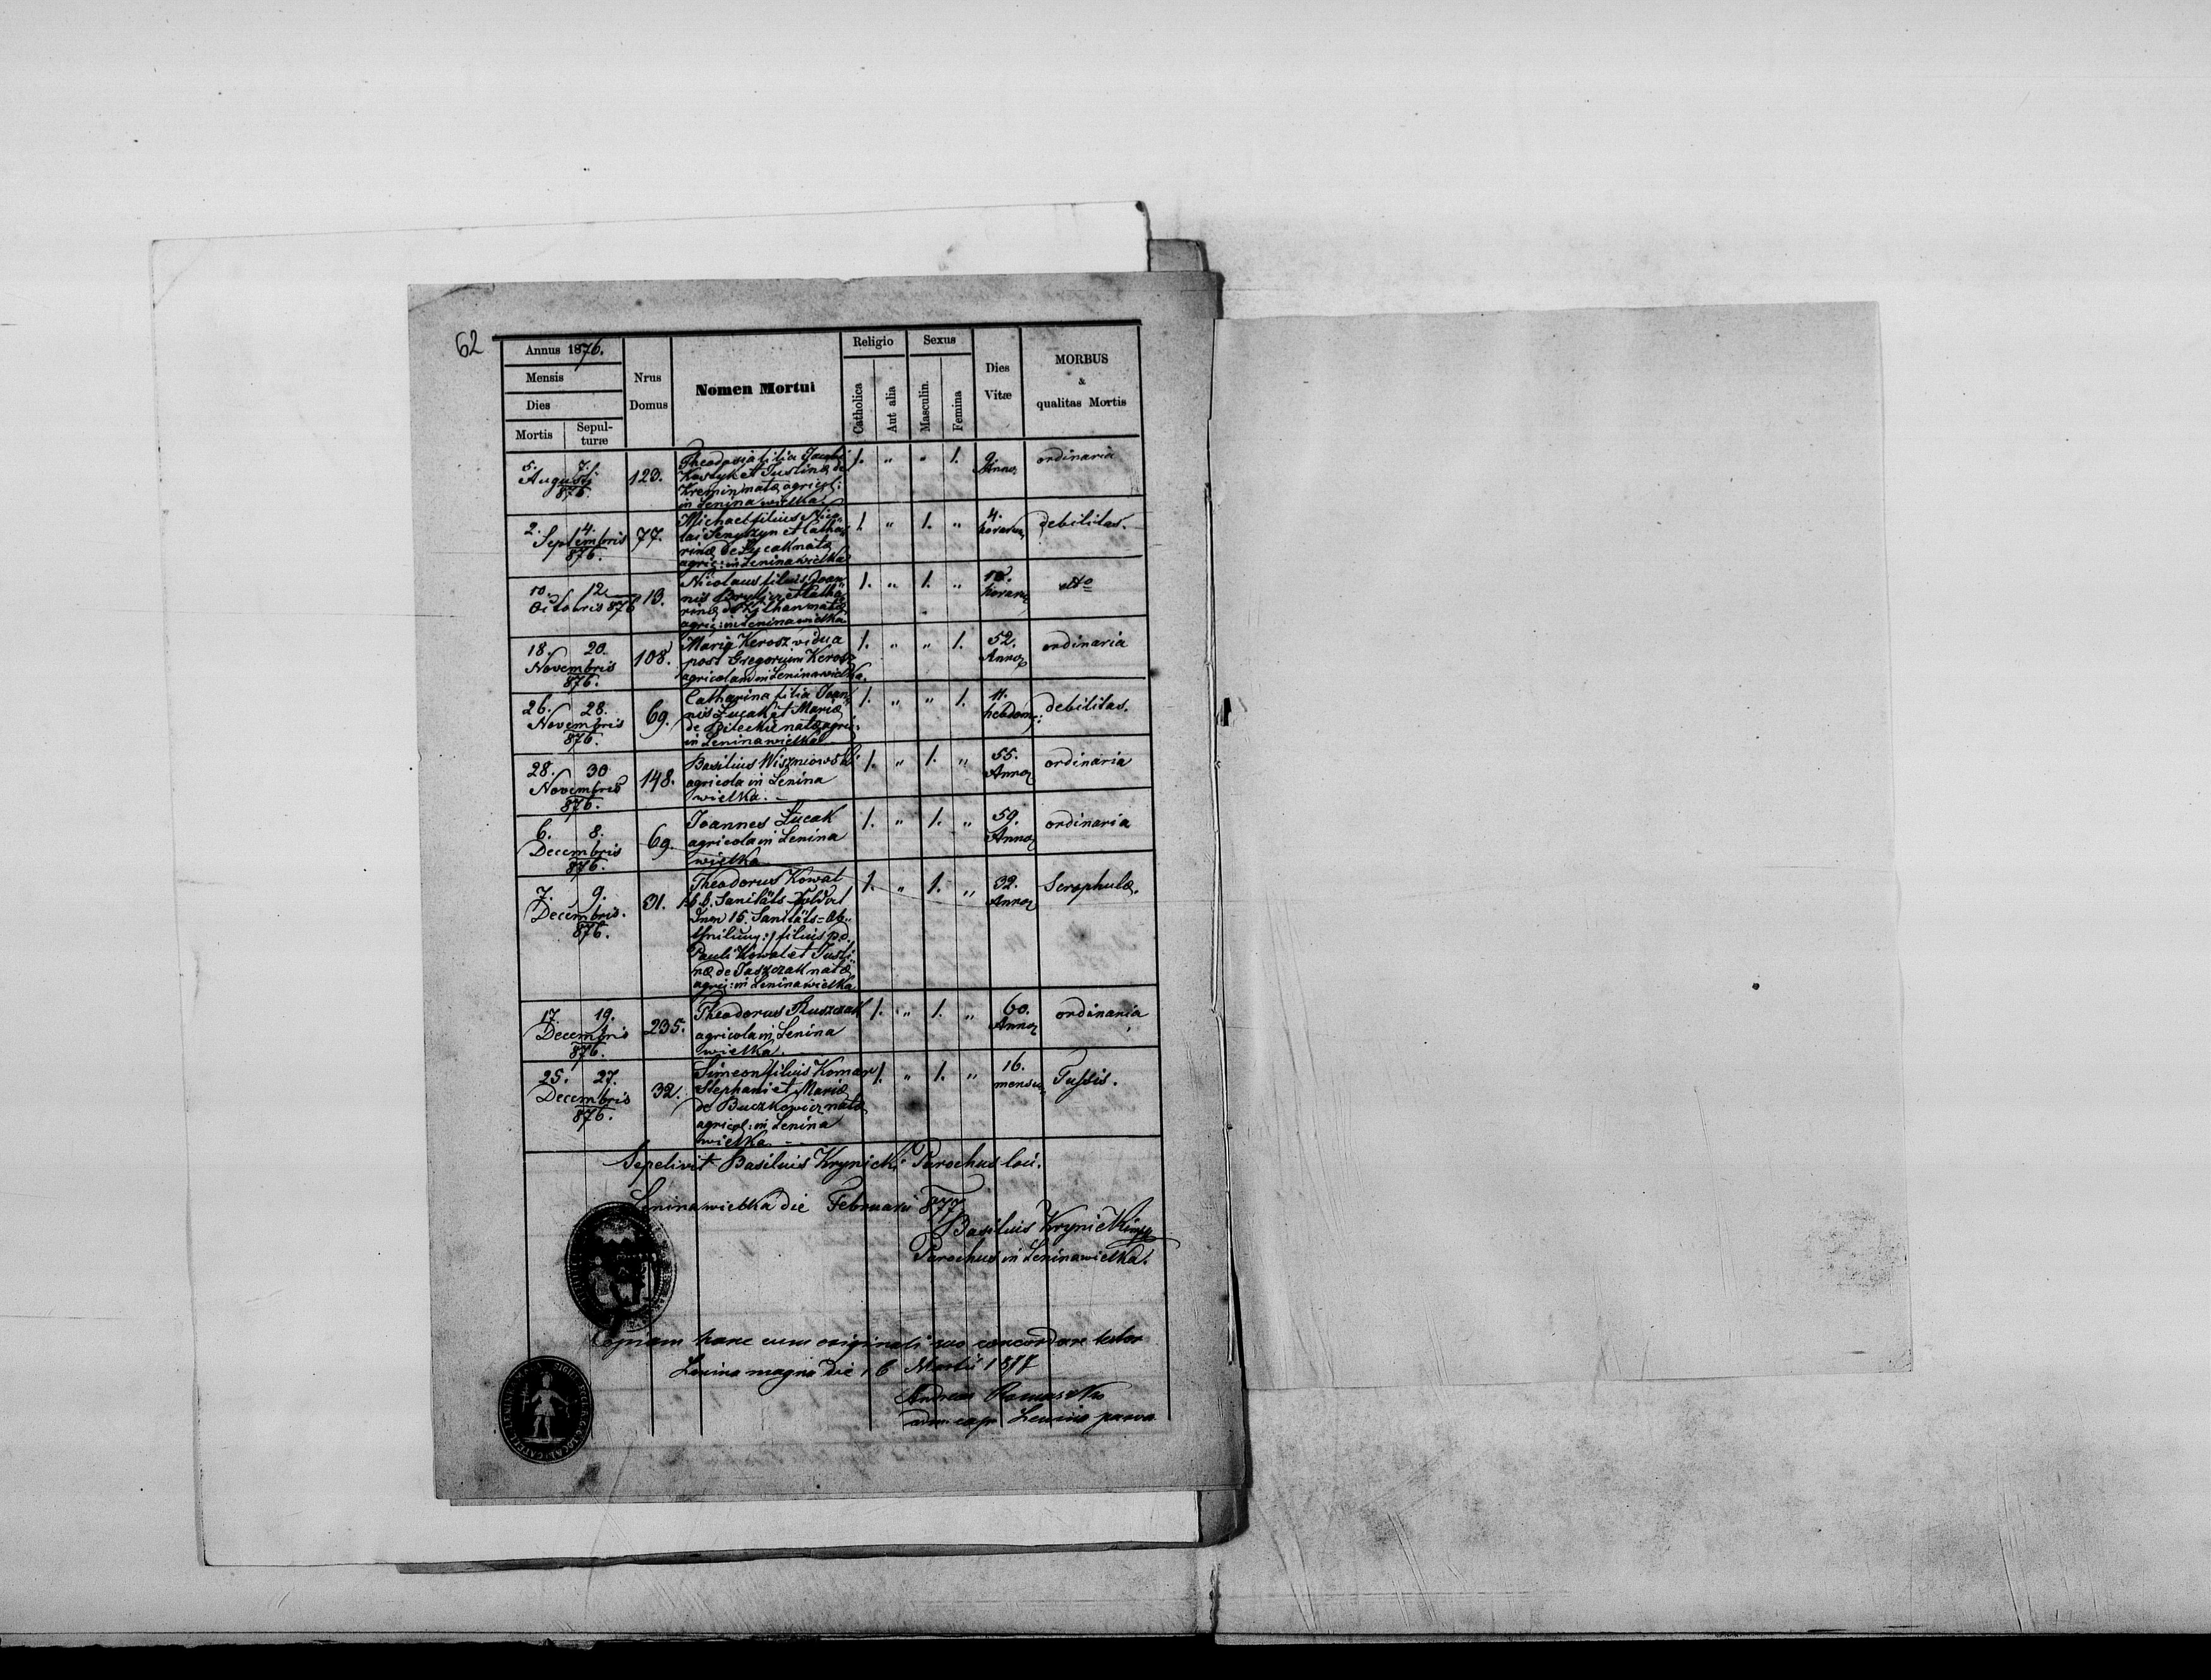 62
Annus 1876.
Mensis
Dies
Mortis
Sepul-
turæ
Nrus
Domus
Nomen Mortui
Religio
Catholica
Aut alia
Sexus
Masculin.
Femina
Dies
Vitæ
MORBUS
&
qualitas Mortis
5. 7.
Augusti
876.
123.
Theodosia filia Jacobi
Kostyk et Justinæ de
Kremin natæ agricol:
in Lenina wielka
1. " " 1.
9.
Annor
ordinaria
2. 4.
Septembris
876.
77.
Michael filius Nico
lai Senytzyn et Catha
rinæ de Lycak natæ
agric: in Lenina wielka
1. " 1. "
4.
horarum
debilitas.
10. 12
Octobris 876
13.
Nicolaus filius Joan
nis et Catha
rinæ de natæ
agric: in Lenina wielka
1. " 1. "
horarum
dtto
18. 20.
Novembris
876.
108.
Maria Kerosz vidua
post Gregorium Kerosz
agricolam in Lenina wielka.
1. " " 1.
52.
Annor
ordinaria
26. 28.
Novembris
876.
69.
Catharina filia Joan
nis Łucak et Mariæ
de Bilecki natæ agric:
in Lenina wielka
1. " " 1.
11.
hebdom:
debilitas.
28. 30
Novembris
876.
148.
Basilius Wiszniowski
agricola in Lenina
wielka. -
1. " 1. "
55.
Annor
ordinaria
6. 8.
Decembris
876.
69.
Joannes Łucak
agricola in Lenina
wielka
1. " 1. "
59.
Annor
ordinaria
7. 9.
Decembris.
876.
31.
Theodorus Kowal
/:k.k. Sanitäts-Soldat
15. Sanitäts=Ab-
theilung:/ filius p.d.
Pauli Kowal et Justi
næ de Jaszczak natæ
agric: in Lenina wielka
1. " 1. "
32.
Annor
Scrophulæ.
17. 19.
Decembris
876.
235.
Theodorus Ruszczak
agricola in Lenina
wielka.
1. " 1. "
60.
Annor
ordinaria
25. 27.
Decembris
876.
32.
Simeon filius Komar
Stephani et Mariæ
de Buczkowicz natæ
agricol: in Lenina
wielka - -
1. " 1. "
16.
mensium
Tussis.
Sepelivit Basilius Krynicki Parochus loci.
Lenina wielka die Februarii 877
Basilius Krynicki mp
Parochus in Lenina wielka.
Copiam hanc cum originali suo concordare testor
Lenina magna die 16 Martii 1877
Andreas Romaszko
adm capn Lenina parva